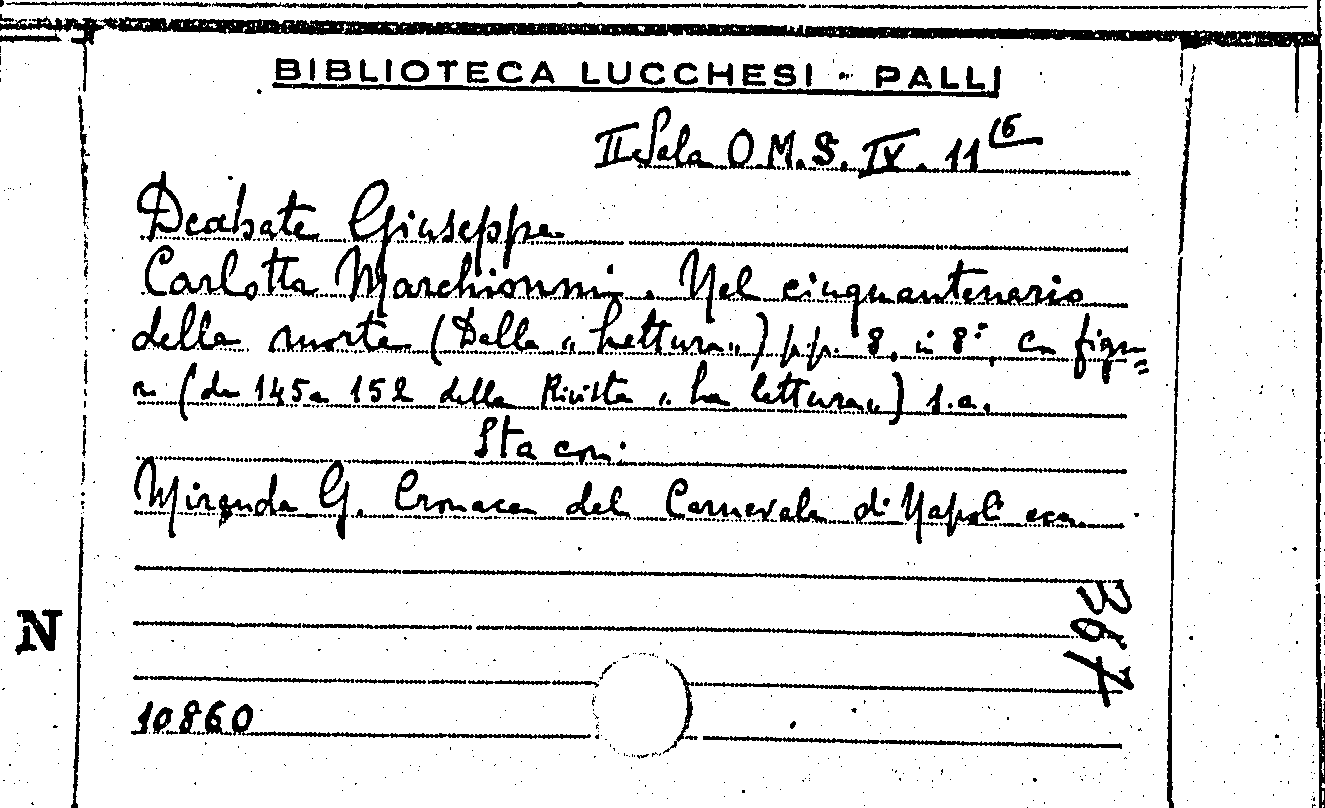 BIBLIOTECA LUCCHESI - PALLI
II Sala O.M.S. IV. 11 (6
Deabate Giuseppe
Carlotta Marchionni. Nel cinquantenario
della morte (Dalla „Lettura„) pp. 8, in 8°, con figu=
re (da 145 a 152 della Rivista „La lettura„) s.a.
Sta con:
Miranda G. Cronaca del Carnevale di Napoli ecc.
367
N
10860